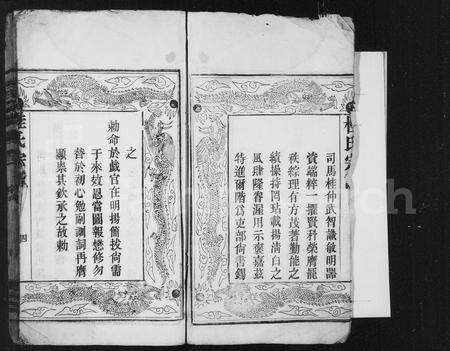 司馬桂仲武智識敏明器
資端粹一擢賢科榮膺寵
秩綜理有方茂著勤能之
績操持罔玷載揚清白之
風肆隆眷渥用示褒嘉茲
特進爾階為吏部尚書錫
之
勅命於戲官在明揚簡拔尚需
于來效恩當圖報懋修勿
替於初心勉副訓詞再膺
顯崇其欽承之故勅
桂氏宗
四